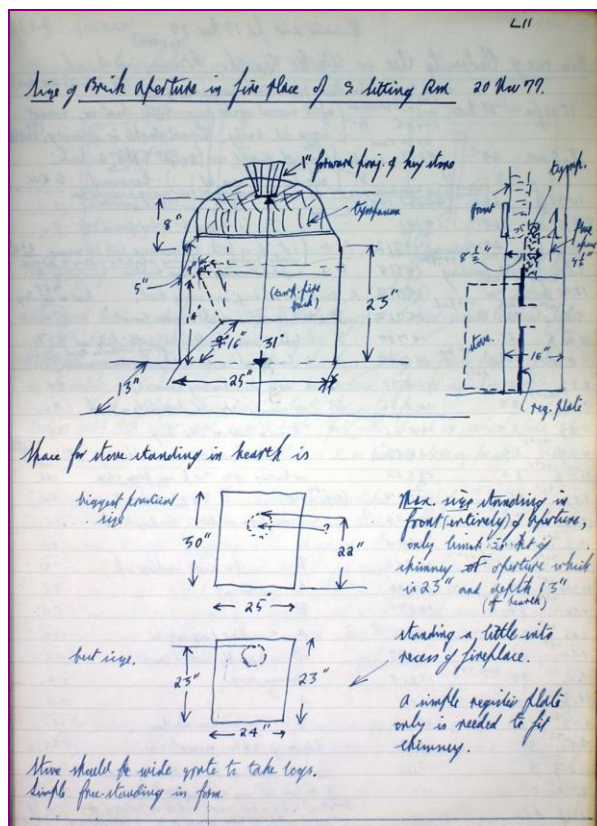 L11
Size of Brick Aperture in fire place of S Sitting Rm 20 Nov 77.
1" forward proj. of key stone
tymp.
front
tympanum
8"
8 1/2"
flue
5"
(
back)
23"
16"
31"
stove
16"
13"
25"
reg. plate
Space for stove standing in hearth is
biggest practical
size
30"
?
22"
25"
Max. size standing in
front (entirely) of aperture,
only limit is ht of
chimney aperture which
is 23" and depth 13"
(of hearth)
best size.
23"
23"
24"
standing a little into
recess of fireplace.
A simple register plate
only is needed to fit
chimney.
Stove should be wide grate to take logs.
Simple free-standing in form.